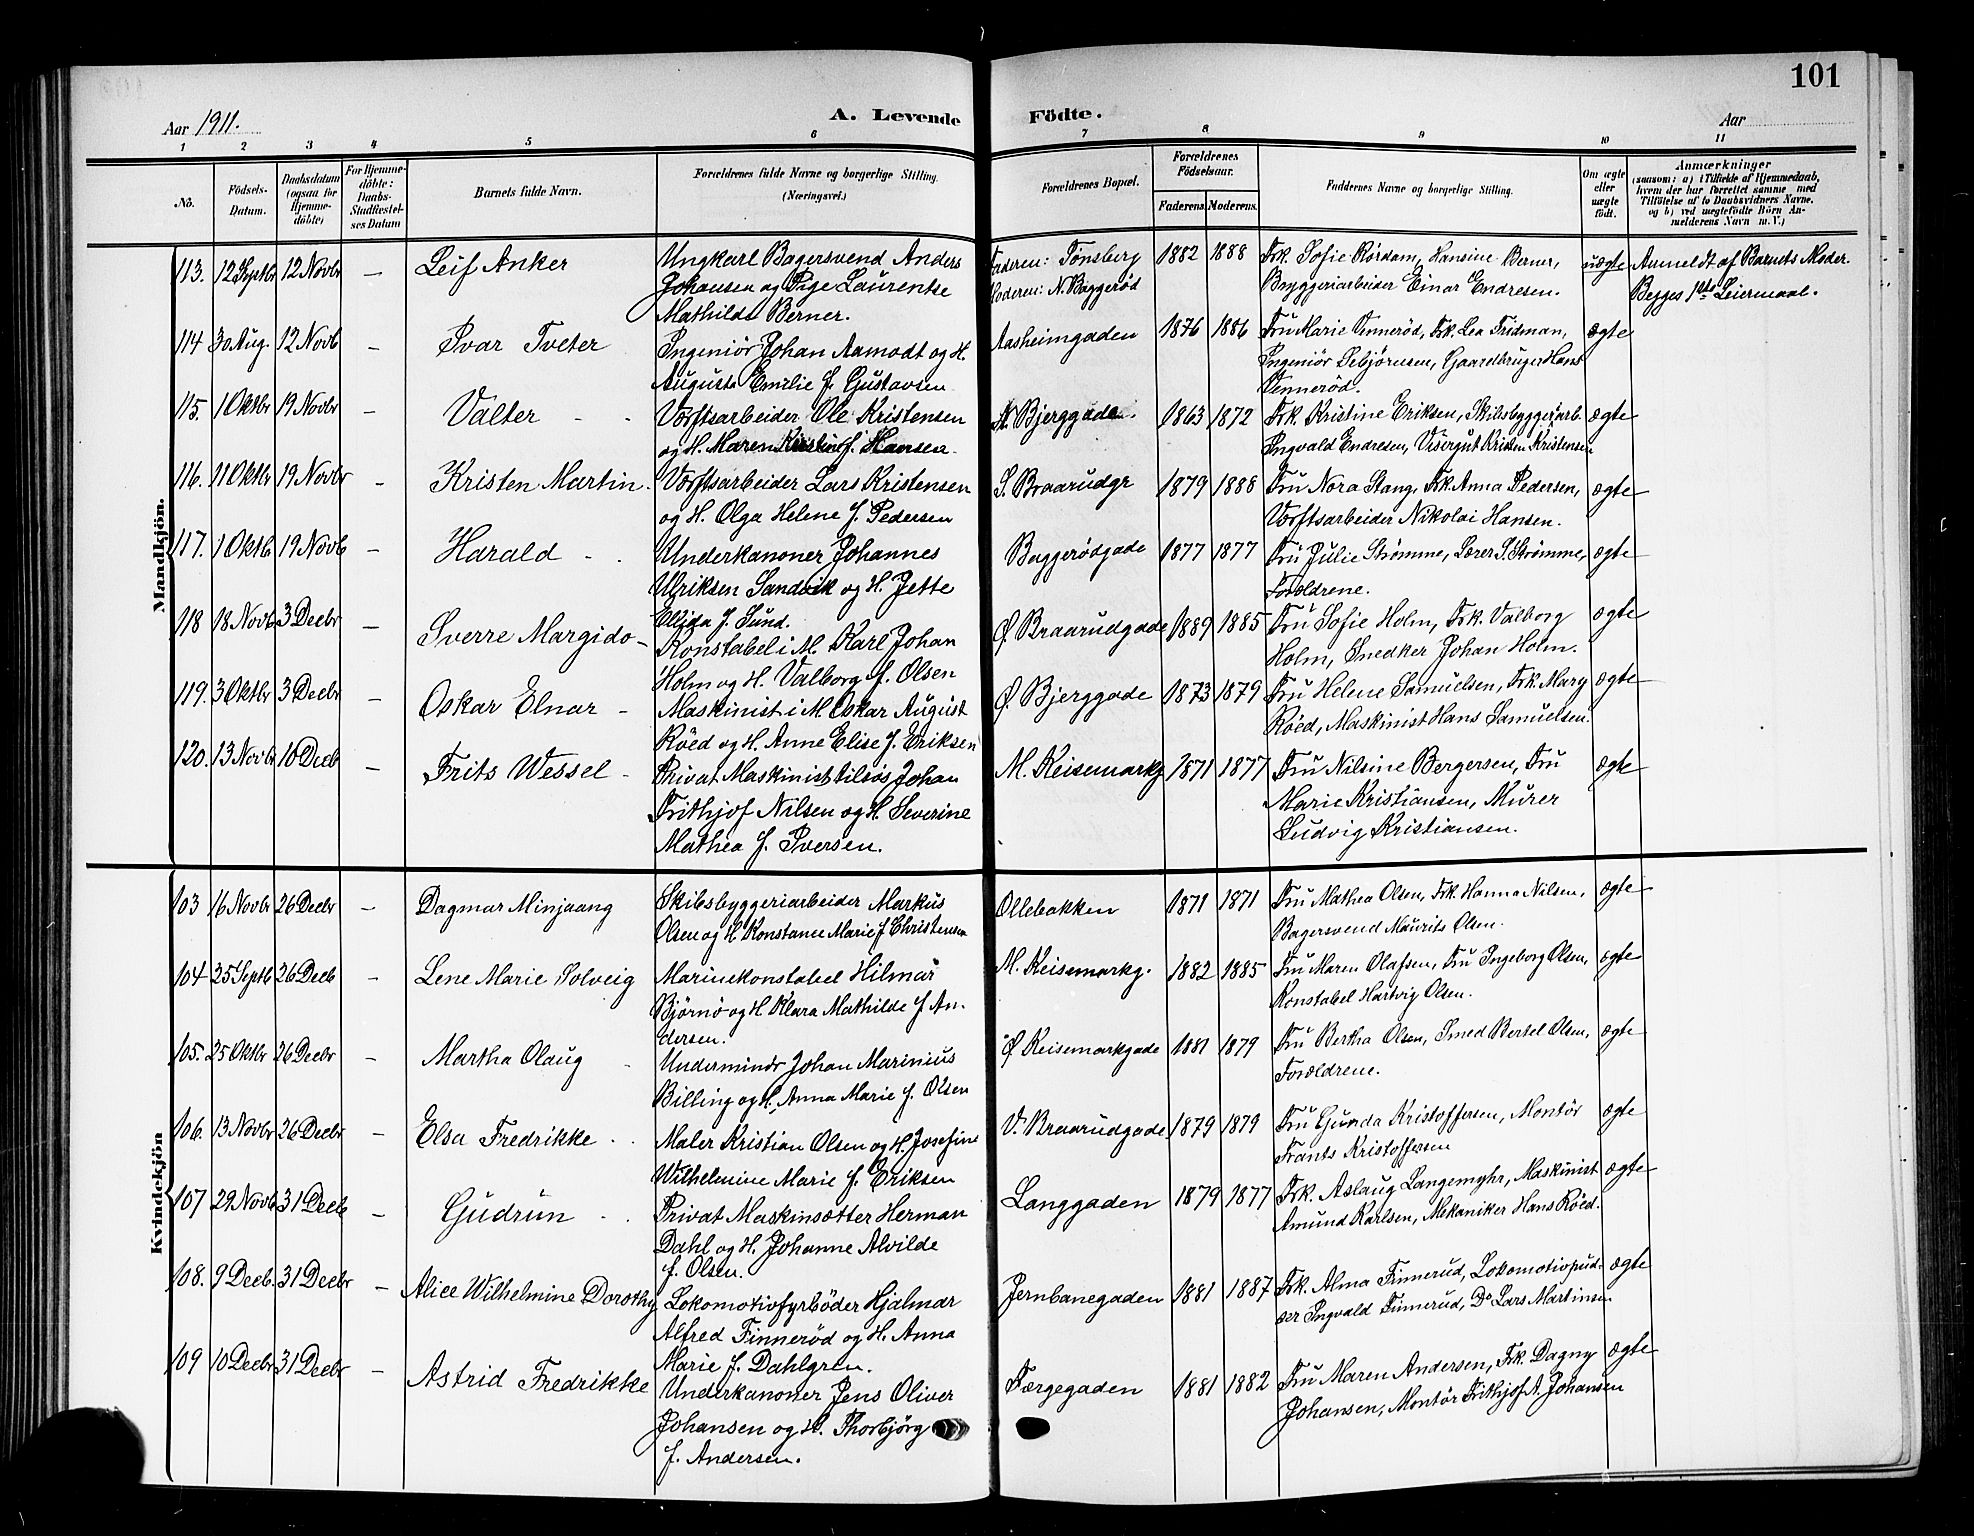 101
Aar 1911.
A. Levende Födte.
Aar
1 2 3 4 5 6 7 8 9 10 11
No.
Födsels-Datum.
Daabsdatum (ogsaa for Hjemme-döbte)
For Hjemme-döbte: Daabs-Stadfæstel-ses Datum
Barnets fulde Navn.
Forældrenes fulde Navne og borgerlige Stilling.
(Næringsvei.)
Forældrenes Bopæl.
Forældrenes Födselsaar.
Faderens. Moderens.
Faddernes Navne og borgerlige Stilling.
Om ægte eller uægte födt.
Anmærkninger
(saasom: a) i Tilfælde af Hjemmedaab,
hvem der har forrettet samme, med
Tilföielse af to Daabsvidners Navne.
og b) ved uægtefödte Börn An-
melderens Navn m. V.)
Mandkjön.
113. 12 Septbr 12 Novbr – Leif Anker
Ungkarl Bagersvend Anders
Johansen og Pige Laurentse
Mathilde Berner.
Faderen: Tønsberg
Moderen: N. Baggerød
1882 1888
Frk. Sofie Rørdam, Hansine Berner,
Bryggeriarbeider Einar Endresen.
uægte
Anmeldt af Barnets Moder.
Begges 1ste Leiermaal.
114 30 Aug. 12 Novb – Ivar Tveter
Ingeniör Johan Aamodt og H.
Augusta Emilie f. Gustavsen
Aasheimgaden 1876 1886
Fru Marie Vennerød, Frk. Lea Fridman,
Ingeniör Sebjørnsen, Gaardbruger Hans
Vennerød.
ægte
115. 1 Oktbr 19 Novbr – Valter
Værftsarbeider Ole Kristensen
og H. Maren Kristine f. Hansen.
N. Bjerggade. 1863 1872
Frk. Kristine Eriksen, Skibsbyggeriarb.
Ingvald Endresen, Visergut Kristen Kristensen
ægte
116. 11 Oktbr 19 Novbr – Kristen Martin.
Værftsarbeider Lars Kristensen
og H. Olga Helene f. Pedersen
S. Braarudgr 1879 1888
Fru Nora Stang, Frk. Anna Pedersen,
Værftsarbeider Nikolai Hansen.
ægte
117. 1 Oktb 19 Novb – Harald
Underkanoner Johannes
Ulriksen Sandvik og H. Jette
Elida f. Lund.
Baggerødgade 1877 1877
Fru Julie Strømme, Lærer S. Strømme,
Forældrene.
ægte
118 18 Novb. 3 Decbr – Sverre Margido
Konstabel i M. Karl Johan
Holm og H. Valborg f. Olsen
Ø. Braarudgade 1889 1885
Fru Sofie Holm, Frk. Valborg
Holm, Snedker Johan Holm.
ægte
119. 3 Oktbr 3 Decbr – Oskar Elnar
Maskinist i M. Oskar August
Røed og H. Anne Elise f. Eriksen
Ø. Bjerggade 1873 1879
Fru Helene Samuelsen, Frk. Mary
Røed, Maskinist Hans Samuelsen.
ægte
120. 13 Novbr 10 Decb – Frits Wessel
Privat Maskinist tilsøs Johan
Frithjof Nilsen og H. Severine
Mathea f. Iversen.
M. Keisemarkg 1871 1877
Fru Nilsine Bergersen, Fru
Marie Kristiansen, Murer
Ludvig Kristiansen.
ægte
Kvindekjön
103 16 Novbr 26 Decbr – Dagmar Minjaang
Skibsbyggeriarbeider Markus
Olsen og H Konstance Marie f Christensen
Ollebakken 1871 1871
Fru Mathea Olsen, Frk. Hanna Nilsen,
Bagersvend Maurits Olsen.
ægte
104 25 Septb 26 Decb – Lene Marie Solveig
Marinekonstabel Hilmar
Bjørnø og H Klara Mathilde f An-
dersen.
M. Keisemarkg. 1882 1885
Fru Maren Olafsen, Fru Ingeborg Olsen,
Konstabel Hartvig Olsen.
ægte
105. 25 Oktbr 26 Decbr – Martha Olaug
Underminør Johan Marinius
Billing og H. Anna Marie f. Olsen
Ø Keisemarkgade 1881 1879
Fru Bertha Olsen, Smed Bertel Olsen,
Forældrene.
ægte
106. 13 Novbr 26 Decbr – Elsa Fredrikke
Maler Kristian Olsen og H. Josefine
Wilhelmine Marie f. Eriksen
V. Braarudgade 1879 1879
Fru Gunda Kristoffersen, Montör
Frants Kristoffersen
ægte
107 29 Novb 31 Decb – Gudrun
Privat Maskinsætter Herman
Dahl og H. Johanne Alvilde
f. Olsen.
Langgaden 1879 1877
Frk. Aslaug Langemyhr, Maskinist
Amund Karlsen, Mekaniker Hans Røed.
ægte
108. 9 Decb. 31 Decbr – Alice Wilhelmine Dorothy
Lokomotivfyrbøder Hjalmar
Alfred Finnerød og H. Anna
Marie f. Dahlgren.
Jernbanegaden 1881 1887
Frk. Alma Finnerud, Lokomotivpud-
ser Ingvald Finnerud, Do Lars Martinsen
ægte
109 10 Decbr 31 Decbr – Astrid Fredrikke
Underkanoner Jens Oliver
Johansen og H. Thorbjörg
f. Andersen.
Færgegaden 1881 1882
Fru Maren Andersen, Frk. Dagny
Johansen, Montör Frithjof A. Johansen
ægte